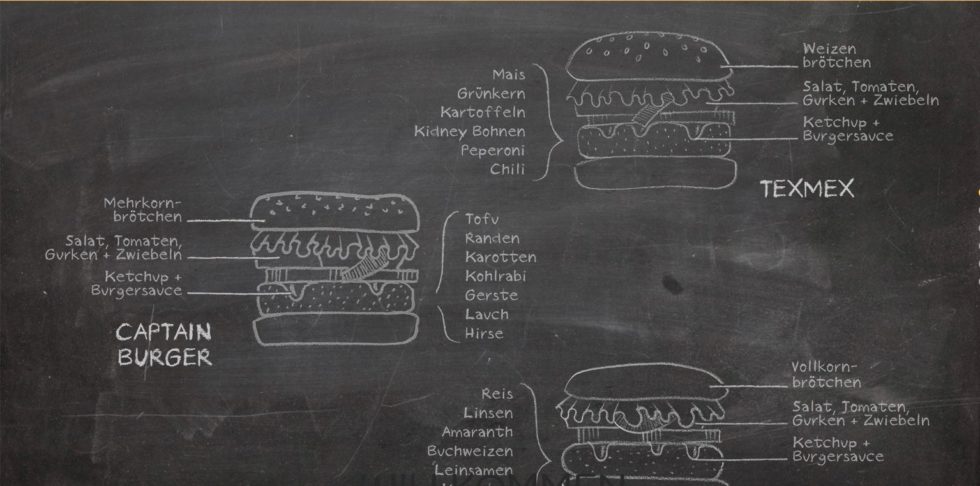 Mais
Grünkern
Kartoffeln
Kidney Bohnen
Peperoni
Chili
Weizen
brötchen
Salat, Tomaten,
Gurken + Zwiebeln
Ketchup +
Burgersauce
TEXMEX
Mehrkorn-
brötchen
Salat, Tomaten,
Gurken + Zwiebeln
Ketchup +
Burgersauce
CAPTAIN
BURGER
Tofu
Randen
Karotten
Kohlrabi
Gerste
Lauch
Hirse
Reis
Linsen
Amaranth
Buchweizen
Leinsamen
Vollkorn-
brötchen
Salat, Tomaten,
Gurken + Zwiebeln
Ketchup +
Burgersauce